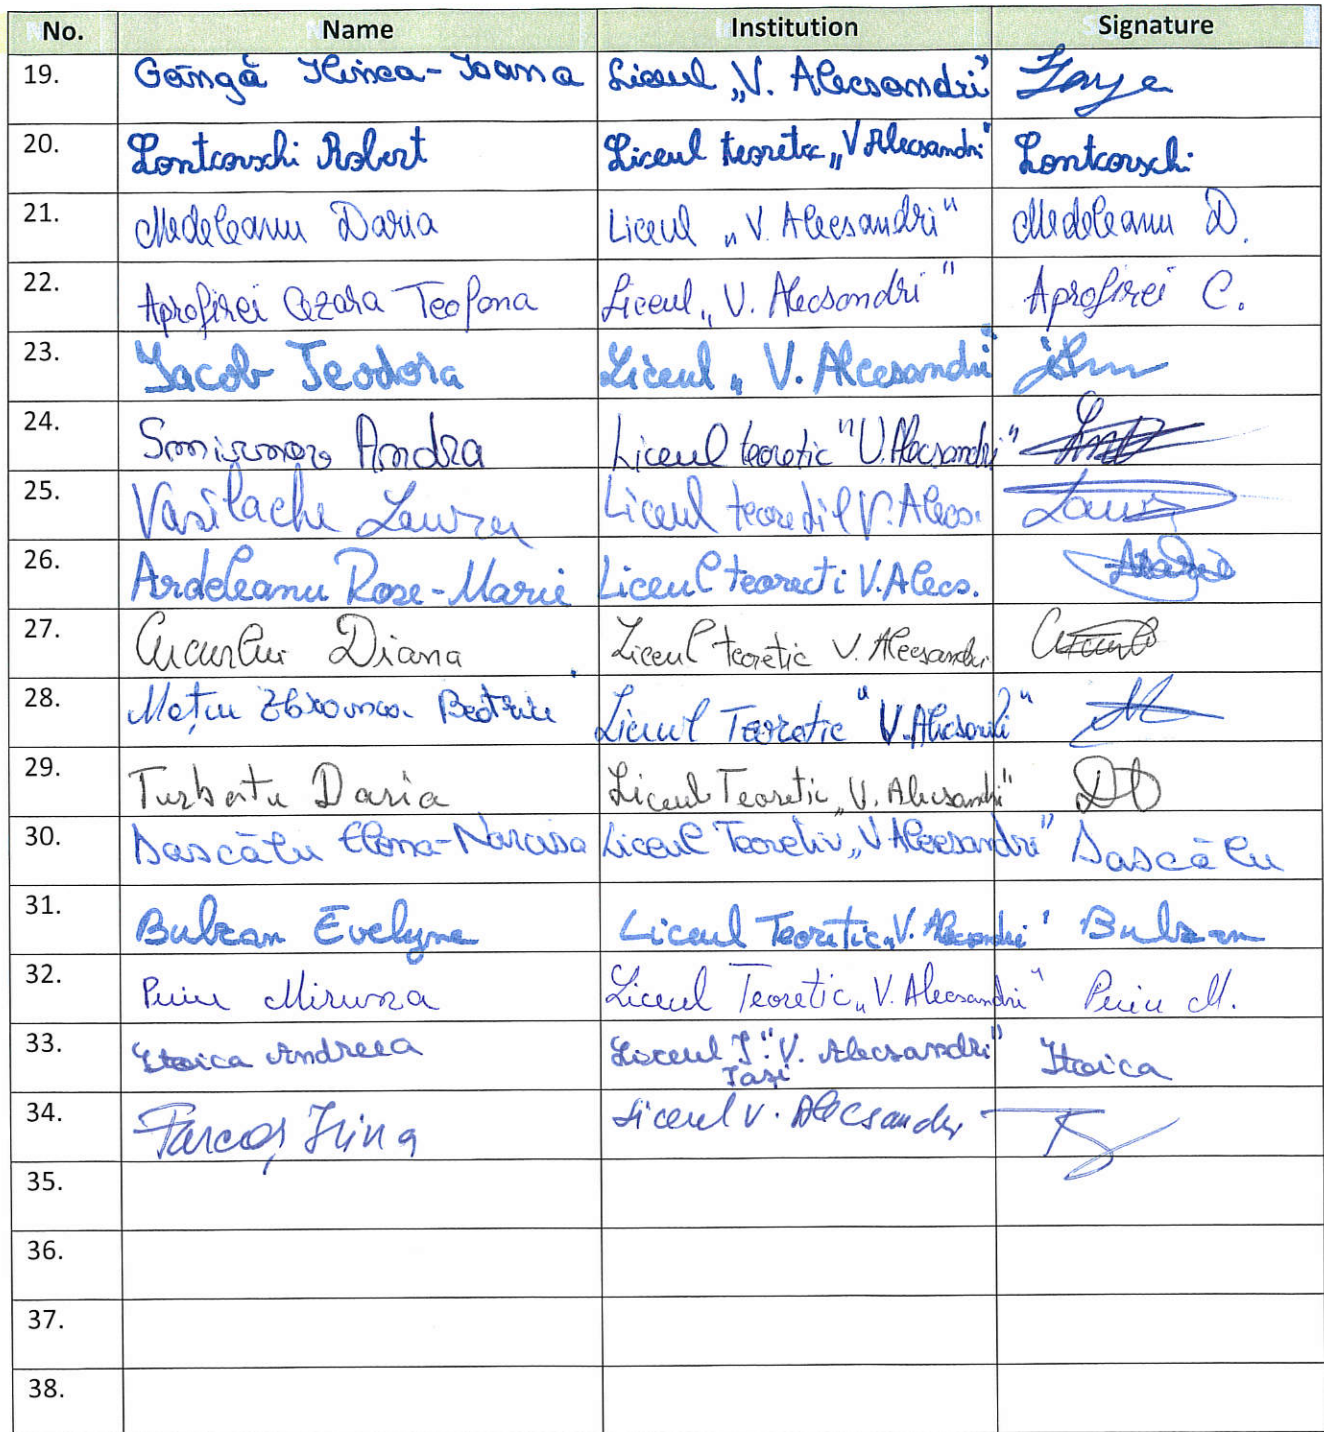 No. Name Institution Signature
19. Gângă Ilinca-Ioana Liceul „V. Alecsandri”
20. Lontcovschi Robert Liceul teoretic „V Alecsandri" Lontcovschi
21. Medeleanu Daria Liceul „V. Alecsandri" Medeleanu D.
22. Aprofirei Cezara Teofana Liceul „V. Alecsandri" Aprofirei C.
23. Iacob Teodora Liceul „V. Alecsandri"
24. Smirnov Andra Liceul teoretic "V. Alecsandri"
25. Vasilache Laura Liceul V. Alecs. Laura
26. Ardeleanu Rose-Marie Liceul teorecti V.Alecs.
27. Cucurlui Diana Liceul teoretic V. Alecsandri
28. Mațcu Beatrice Liceul Teoretic "V. Alecsandri"
29. Turbatu Daria Liceul Teoretic „V. Alecsandri" DT
30. Dascălu Elena-Narcisa Liceul Teoretic „V Alecsandri" Dascălu
31. Bulzan Evelyne Liceul Teoretic „V. Alecsandri" Bulzan
32. Puiu Miruna Liceul Teoretic „V. Alecsandri" Puiu M.
33. Stoica Andreea Liceul T. "V. Alecsandri" Stoica
Iași
34. Farcaș Irina Liceul V. Alecsandri
35.
36.
37.
38.